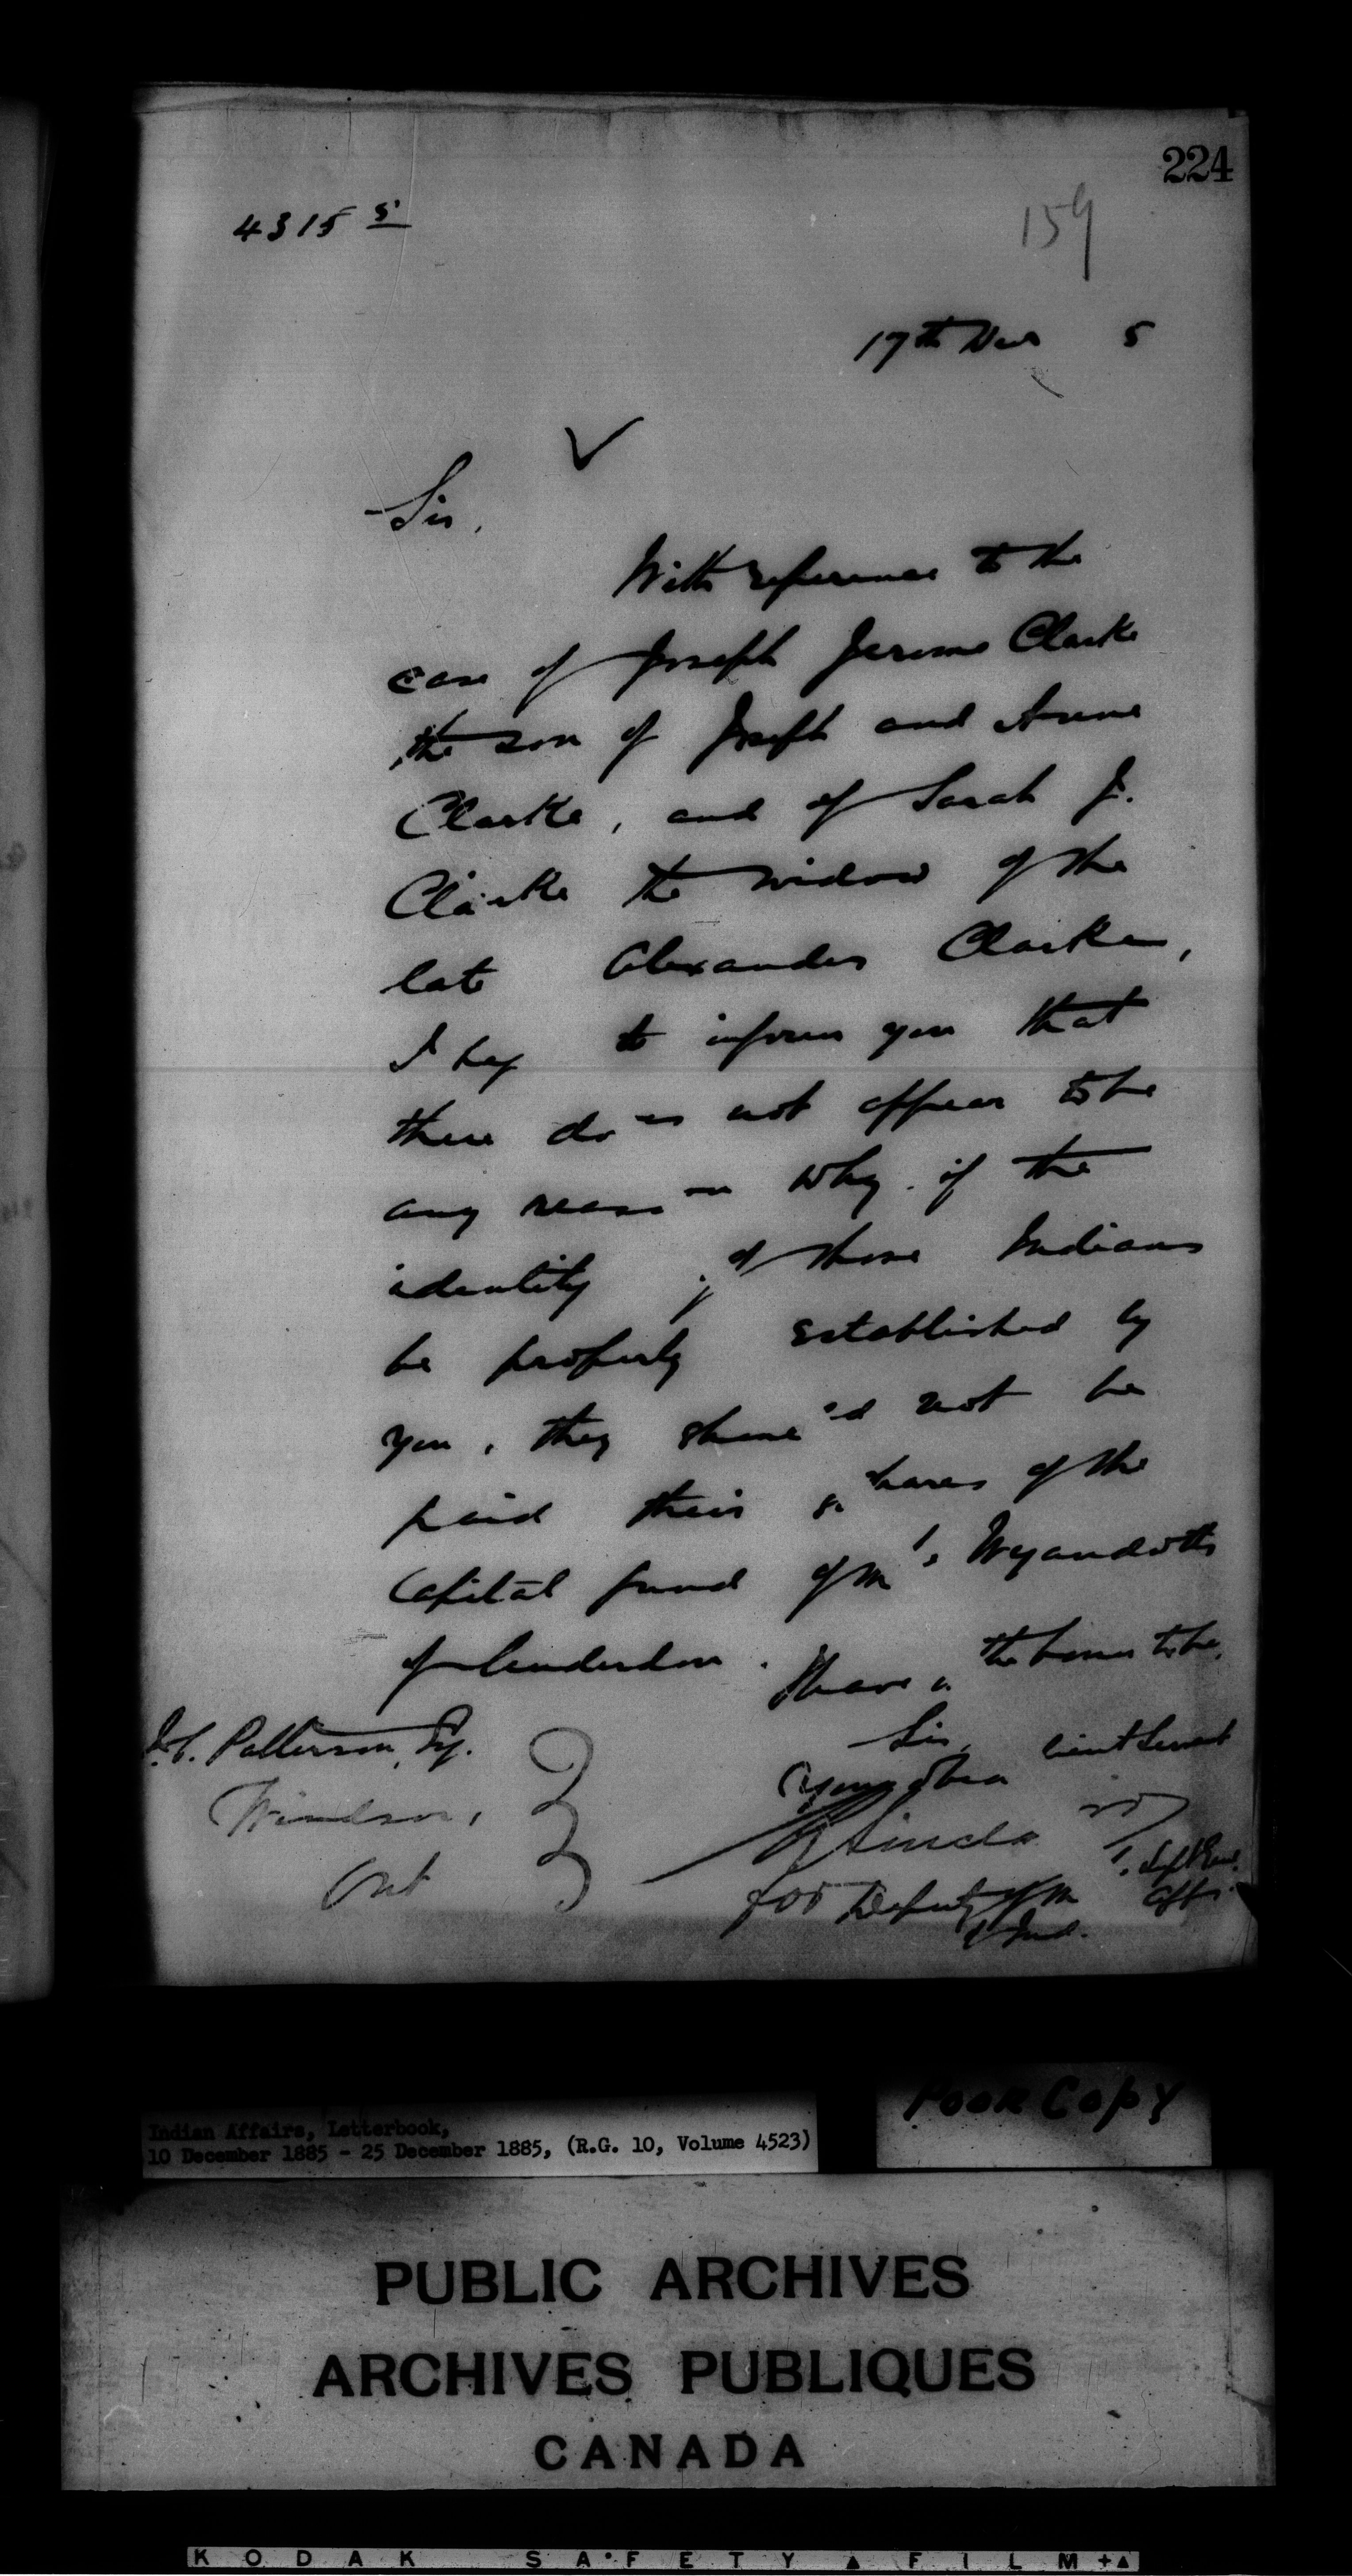 224
4315 5
159
17th Dec 5
Sir,
With reference to the
case of Joseph Jerome Clarke
the son of Joseph and Anne
Clarke, and of Sarah J.
Clarke the widow of the
late Alexander Clarke,
I beg to inform you that
there does not appear to be
any reason why if the
identity of those Indians
be properly established by
you, they should not be
paid their shares of the
Capital fund of the Wyandotts
of Anderdon.
I have the honor to be,
Sir,
Your obedient Servant
J.C. Patterson, Esq.
Windsor,
Ont
for Deputy of the Supt Genl.
of Ind. Affs.
Poor Copy
Indian Affairs, Letterbook,
10 December 1885 - 25 December 1885, (R.G. 10, Volume 4523)
PUBLIC ARCHIVES
ARCHIVES PUBLIQUES
CANADA
KODAK SAFETY FILM